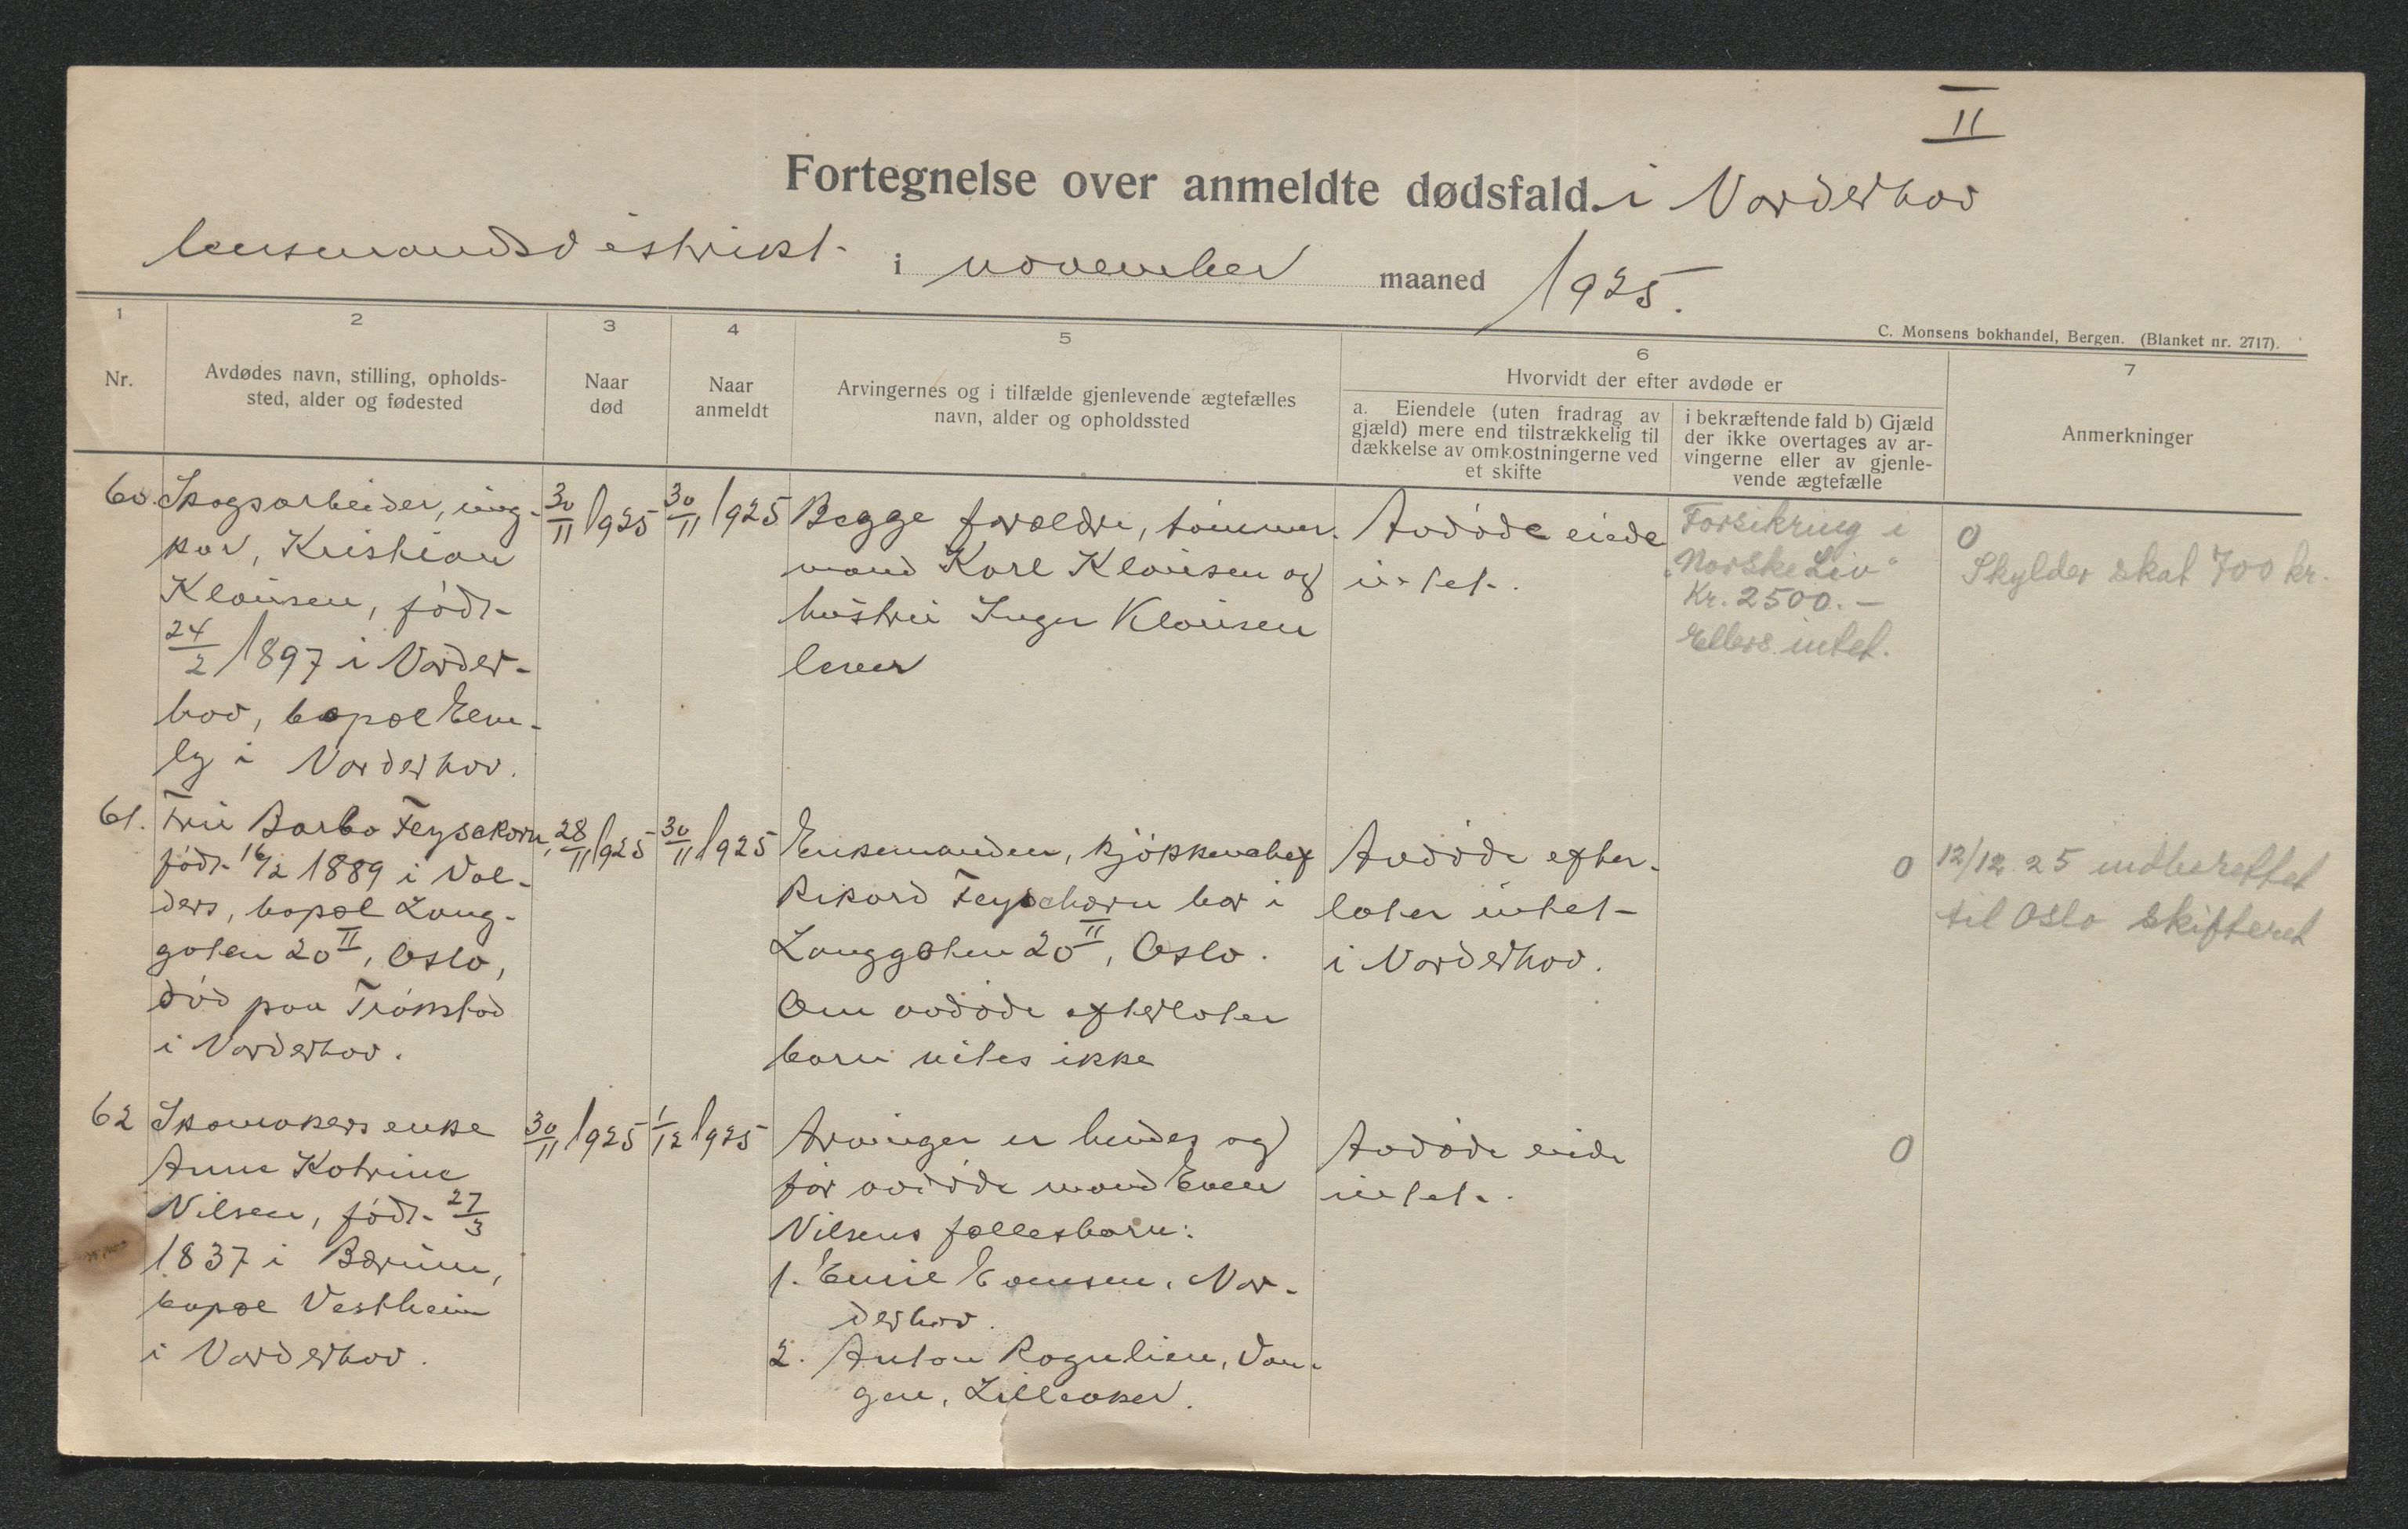 II
Fortegnelse over anmeldte dødsfald. i Norderhov
lensmandsdistrikt i november maaned 1925.
C. Monsens bokhandel, Bergen. (Blanket nr. 2717).
1
2
3
4
5
6
7
Nr.
Avdødes navn, stilling, opholds-
sted, alder og fødested
Naar
død
Naar
anmeldt
Arvingernes og i tilfælde gjenlevende ægtefælles
navn, alder og opholdssted
Hvorvidt der efter avdøde er
a. Eiendele (uten fradrag av
gjæld) mere end tilstrækkelig til
dækkelse av omkostningerne ved
et skifte
i bekræftende fald b) Gjæld
der ikke overtages av ar-
vingerne eller av gjenle-
vende ægtefælle
Anmerkninger
60.
Skogsarbeider, ung-
kar, Kristian
Klausen, født
24/2 1897 i Norder-
hov, bopæl Elm-
ly i Norderhov.
30/11 1925
30/11 1925
Begge forældre, tømmer-
mand Karl Klausen og
hustru Inger Klausen
lever
Avdøde eiede
intet.
Forsikring i
"Norske Liv"
Kr. 2500.-
Ellers intet.
0
Skylder skat 700 kr.
61.
Fru Barbo Feysckorn,
født 16/2 1889 i Val-
ders, bopæl Lang-
gaten 20 II, Oslo,
død paa Trøkstad
i Norderhov.
28/11 1925
30/11 1925
Enkemanden, kjøkkenchef
Rikard Feyschorn bor i
Langgaten 20 II, Oslo.
Om avdøde efterlater
barn vites ikke
Avdøde efter-
later intet
i Norderhov.
0
12/12 25 indberettet
til Oslo skifteret
62
Skomakersenke
Anne Katrine
Nilsen, født 27/3
1837 i Bærum,
bopæl Vestheim
i Norderhov.
30/11 1925
1/12 1925
Arvinger er hendes og
før avdøde mand Even
Nilsens fællesbarn:
1. Emil Evensen, Nor-
derhov.
2. Anton Rognlien, Van-
gen, Lilleaker.
Avdøde eide
intet.
0